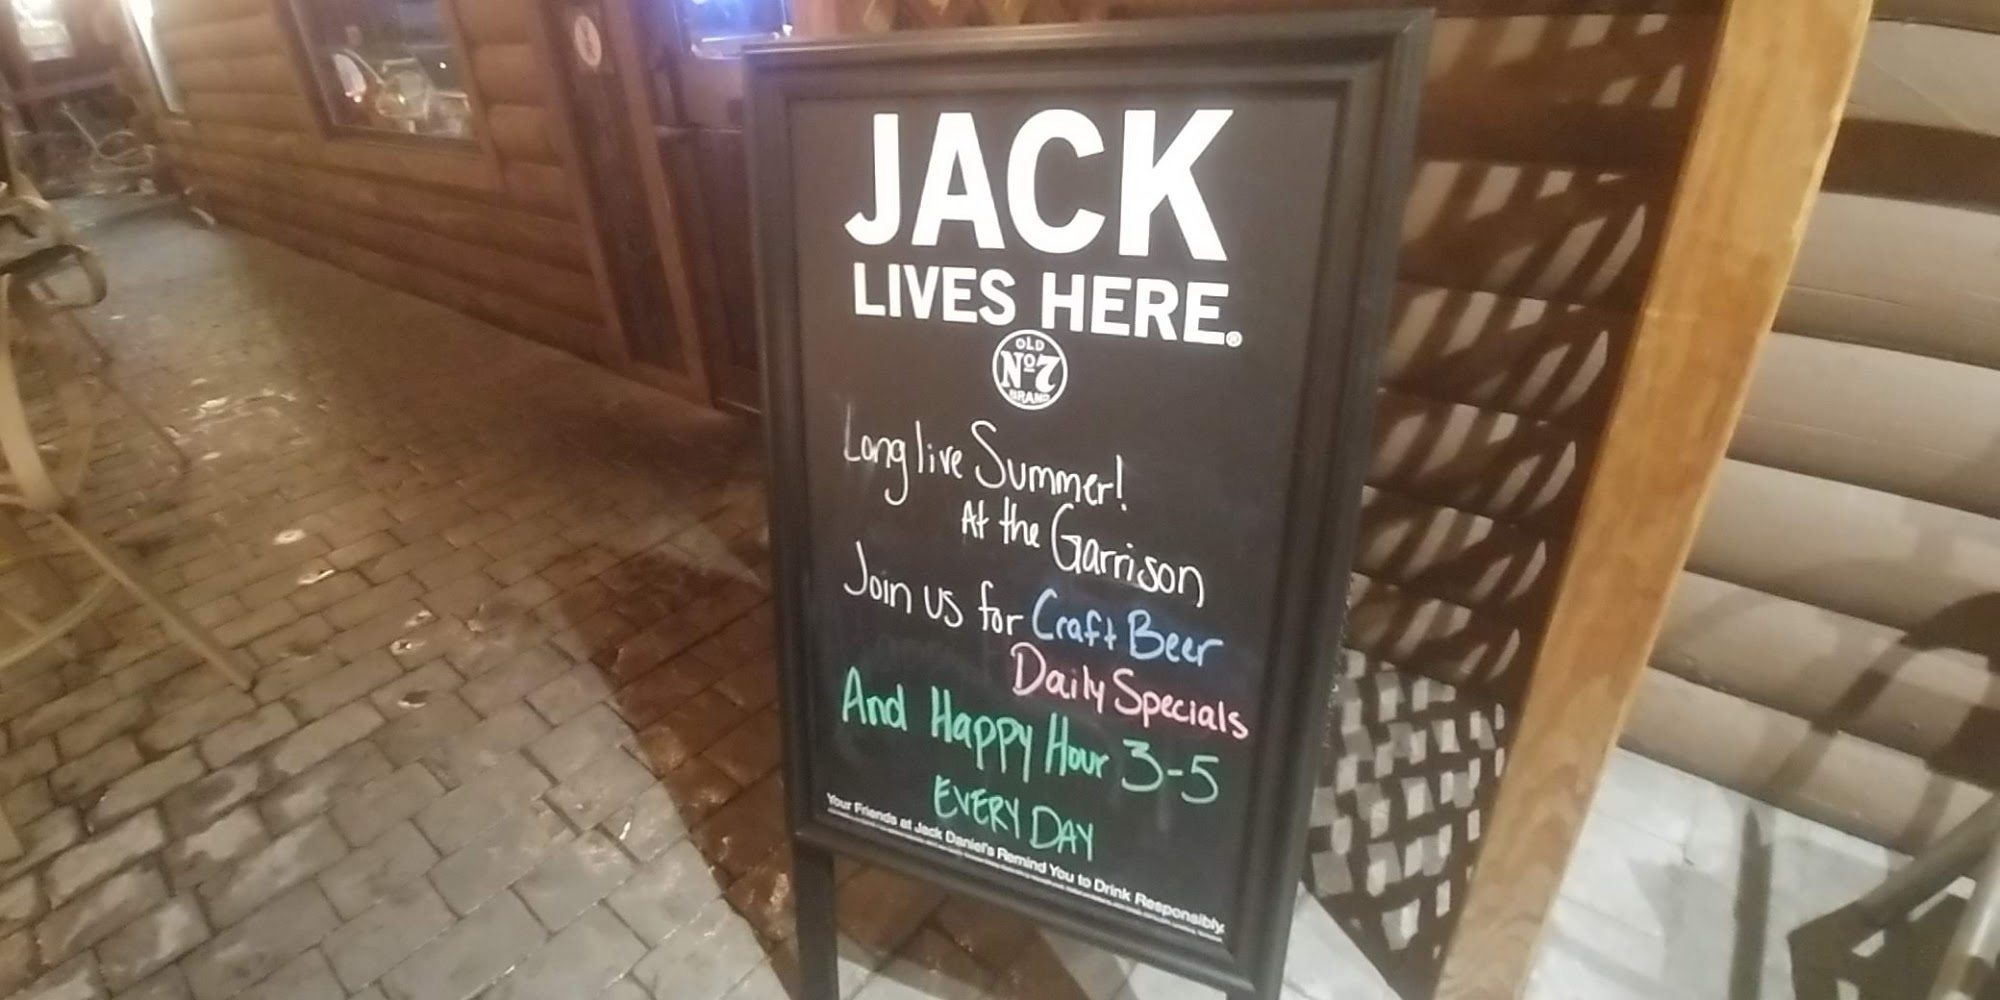 JACK
LIVES HERE.®
OLD
Nº7
BRAND
Long live Summer!
At the Garrison
Join us for Craft Beer
Daily Specials
And Happy Hour 3-5
EVERY DAY
Your Friends at Jack Daniel's Remind You to Drink Responsibly.